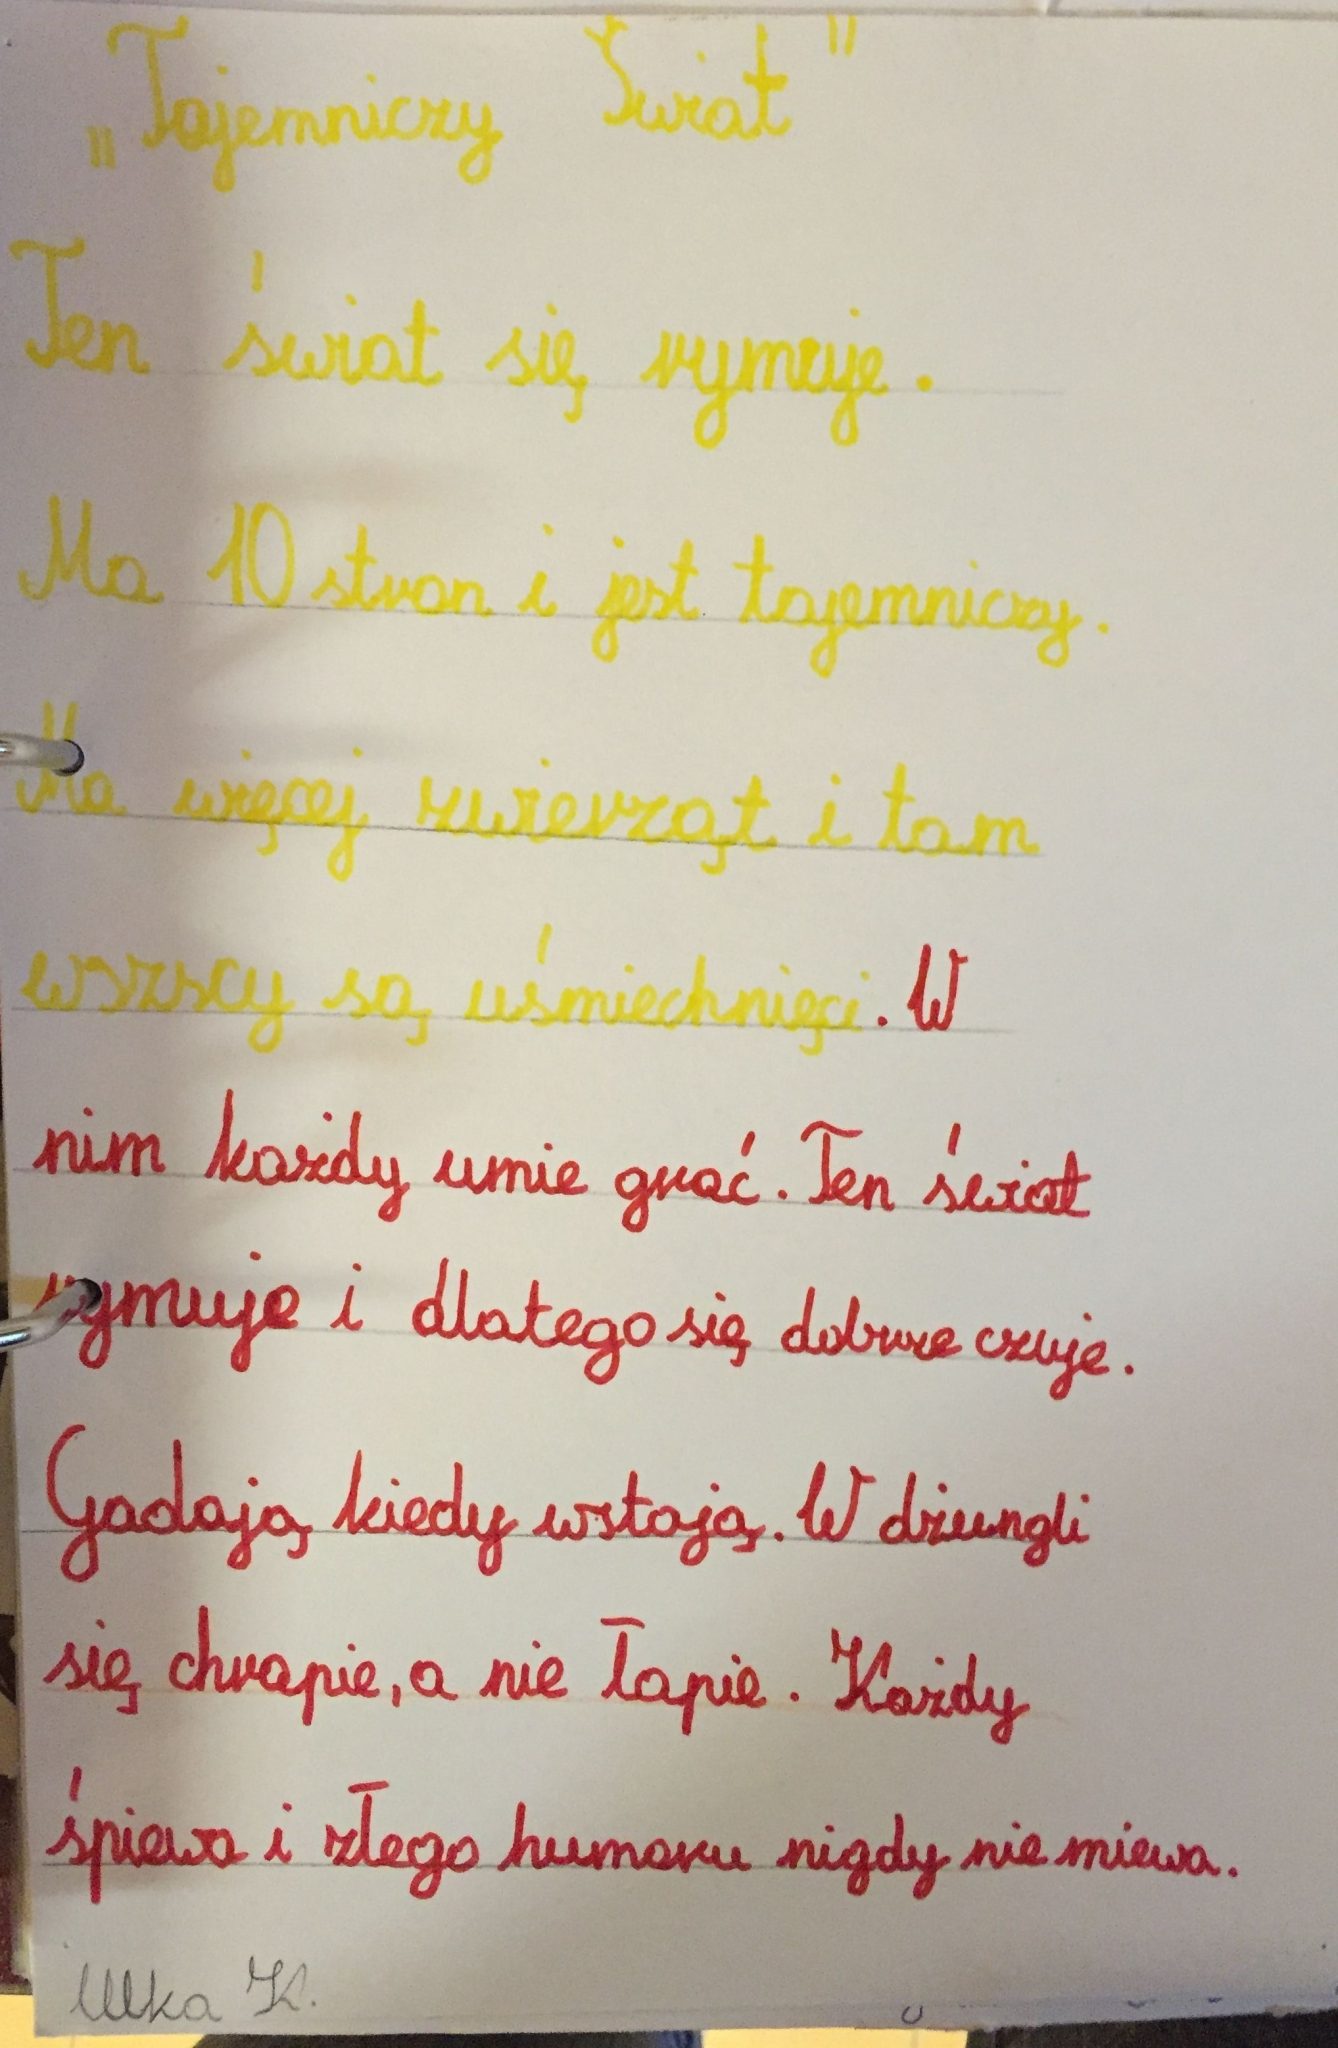 „Tajemniczy Świat"
Ten świat się rymuje.
Ma 10 stron i jest tajemniczy.
Ma więcej zwierząt i tam
wszscy są uśmiechnięci. W
nim każdy umie grać. Ten świat
rymuje i dlatego się dobrze czuje.
Gadają kiedy wstają. W dżungli
się chrapie, a nie łapie. Każdy
śpiewa i złego humoru nigdy nie miewa.
Ulka K.